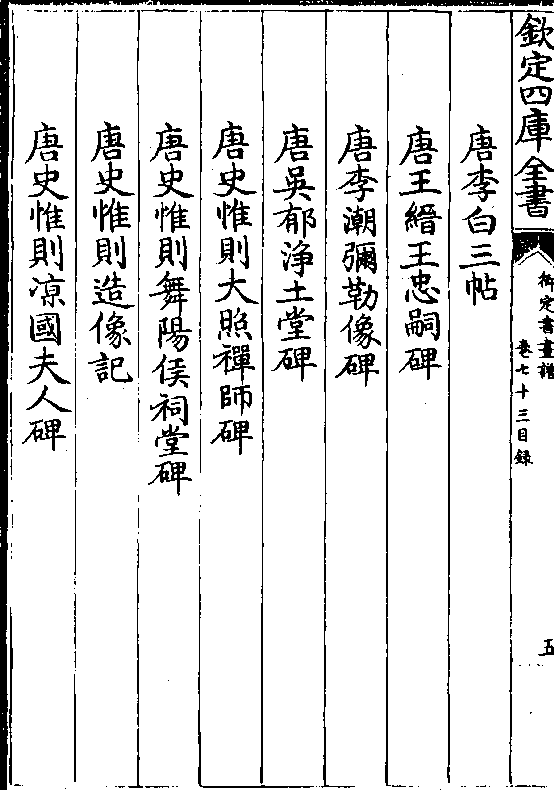 欽定四庫全書
御定書畫譜
卷七十三目錄
五
唐李白三帖
唐王縉王忠嗣碑
唐李潮彌勒像碑
唐吳郁淨土堂碑
唐史惟則大照禪師碑
唐史惟則舞陽侯祠堂碑
唐史惟則造像記
唐史惟則凉國夫人碑